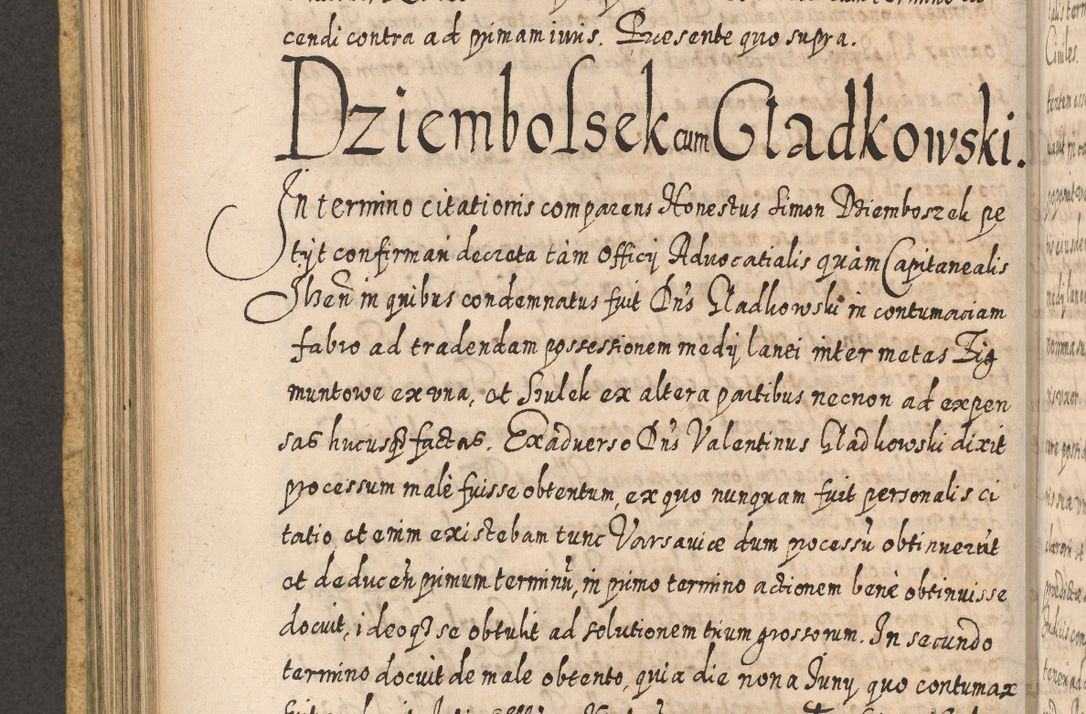 cendi contra ad primam iuris. Præsente quo supra.
Dziembolsek cum Gladkowski.
In termino citationis comparens Honestus Simon Dziemboszek pe
tijt confirmari decreta tàm Officij Advocatialis quàm Capitanealis
in quibus condemnatus fuit Dn͠s Gladkowski in contumaciam
fabro ad tradendam possessionem medij lanei inter metas Zig
muntowe ex vna, et Szulek ex altera partibus necnon ad expen
sas hucusq₃ factas. Ex adverso Dn͠s Valentinus Gladkowski dixit
processum malè fuisse obtentum, ex quo nunquam fuit personalis ci
tatio et enim existebam tunc Varsaviæ dum processũ obtinuerũt
et deducen̄ primum terminũ, in primo termino actionem benè obtinuisse
docuit, ideoq₃ se obtulit ad solutionem trium grossorum. In secundo
termino docuit de male obtento, quia die nona Juny, quo contumax